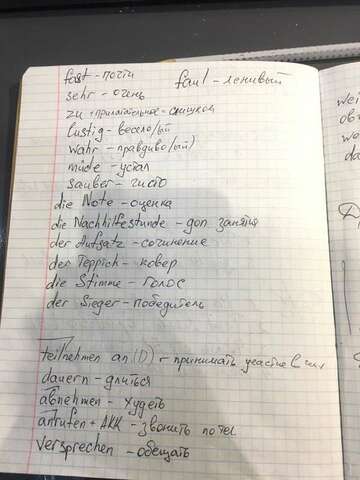 fast - почти
faul - ленивый
sehr - очень
zu + прилагательное - слишком
lustig - весело/ый
wahr - правдиво/ый)
müde - устал
sauber - чисто
die Note - оценка
die Nachhilfestunde - доп. занятия
der Aufsatz - сочинение
der Teppich - ковер
die Stimme - голос
der Sieger - победитель
teilnehmen an (D) - принимать участие в
dauern - длиться
abnehmen - худеть
anrufen + AKK - звонить по тел
versprechen - обещать
wei